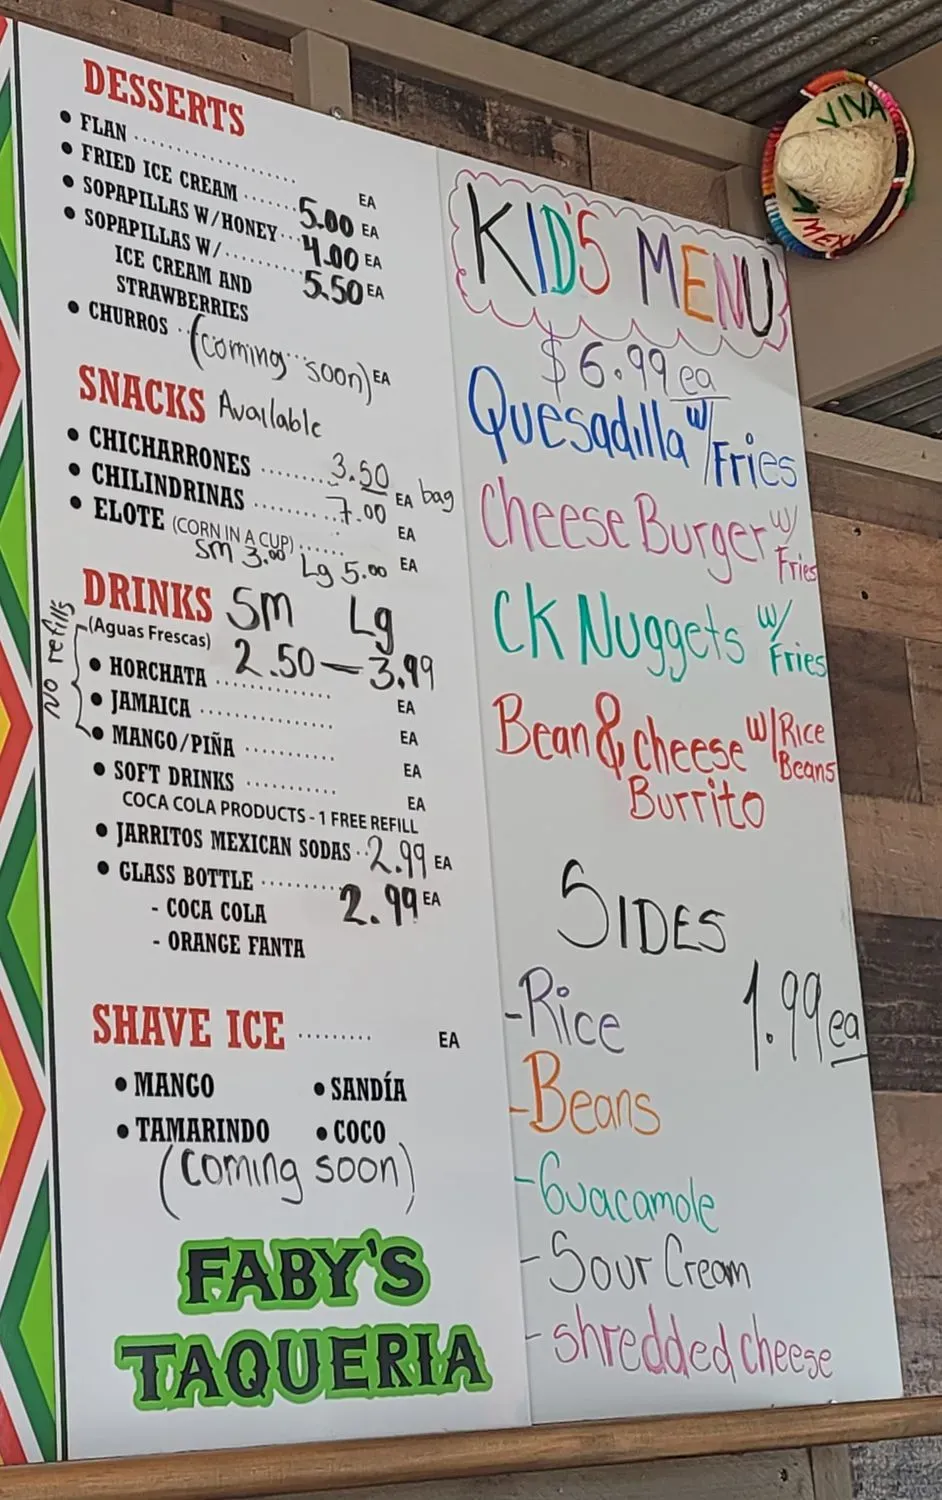 DESSERTS
• FLAN .................... EA
• FRIED ICE CREAM ....... 5.00 EA
• SOPAPILLAS W/HONEY ... 4.00 EA
• SOPAPILLAS W/ .......... 5.50 EA
ICE CREAM AND
STRAWBERRIES
• CHURROS .. (coming soon) EA
SNACKS Available
• CHICHARRONES ....... 3.50 EA bag
• CHILINDRINAS .......... 7.00 EA
• ELOTE (CORN IN A CUP) ...... EA
SM 3.00 Lg 5.00
DRINKS Sm Lg
(Aguas Frescas) 2.50 — 3.99
No refills
• HORCHATA .............. EA
• JAMAICA ................ EA
• MANGO/PIÑA .......... EA
• SOFT DRINKS .......... EA
COCA COLA PRODUCTS - 1 FREE REFILL
• JARRITOS MEXICAN SODAS .. 2.99 EA
• GLASS BOTTLE .......... 2.99 EA
- COCA COLA
- ORANGE FANTA
SHAVE ICE ......... EA
• MANGO • SANDÍA
• TAMARINDO • COCO
(coming soon)
FABY'S
TAQUERIA
KID'S MENU
$6.99 ea
Quesadilla w/Fries
Cheese Burger w/ Fries
CK Nuggets w/ Fries
Bean & cheese w/Rice
Beans
Burrito
SIDES
1.99 ea
-Rice
-Beans
-Guacamole
-Sour Cream
-shredded cheese
VIVA
MEXI